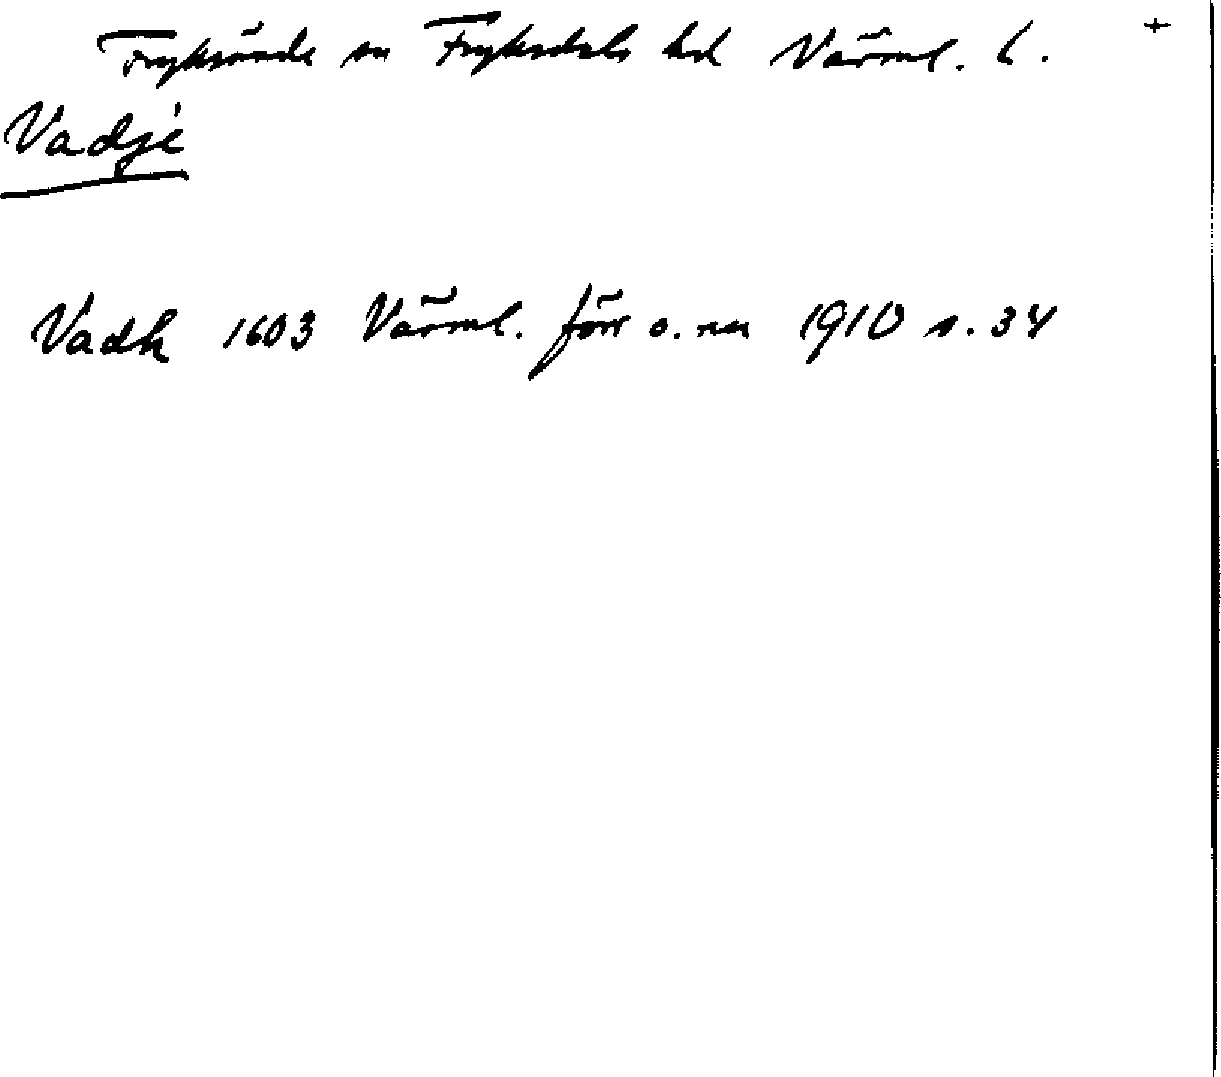 Fryksände sn Fryksdals hd Värml. l. +
Vadjé
Vadh 1603 Värml. förr o. nu 1910 s. 34